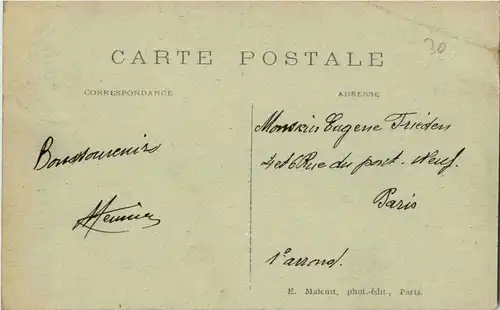 30
CARTE POSTALE
CORRESPONDANCE
ADRESSE
Bons souvenirs
Monsieur Eugene Frieden
4 et 6 Rue du pont-Neuf
Paris
1e arrond.
E. Malcuit, phot.-édit., Paris.